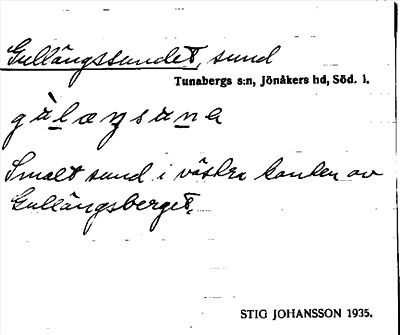 Gullängssundet, sund
Tunabergs s:n, Jönåkers hd, Söd. l.
Smalt sund i västra kanten av
Gullängsberget.
STIG JOHANSSON 1935.